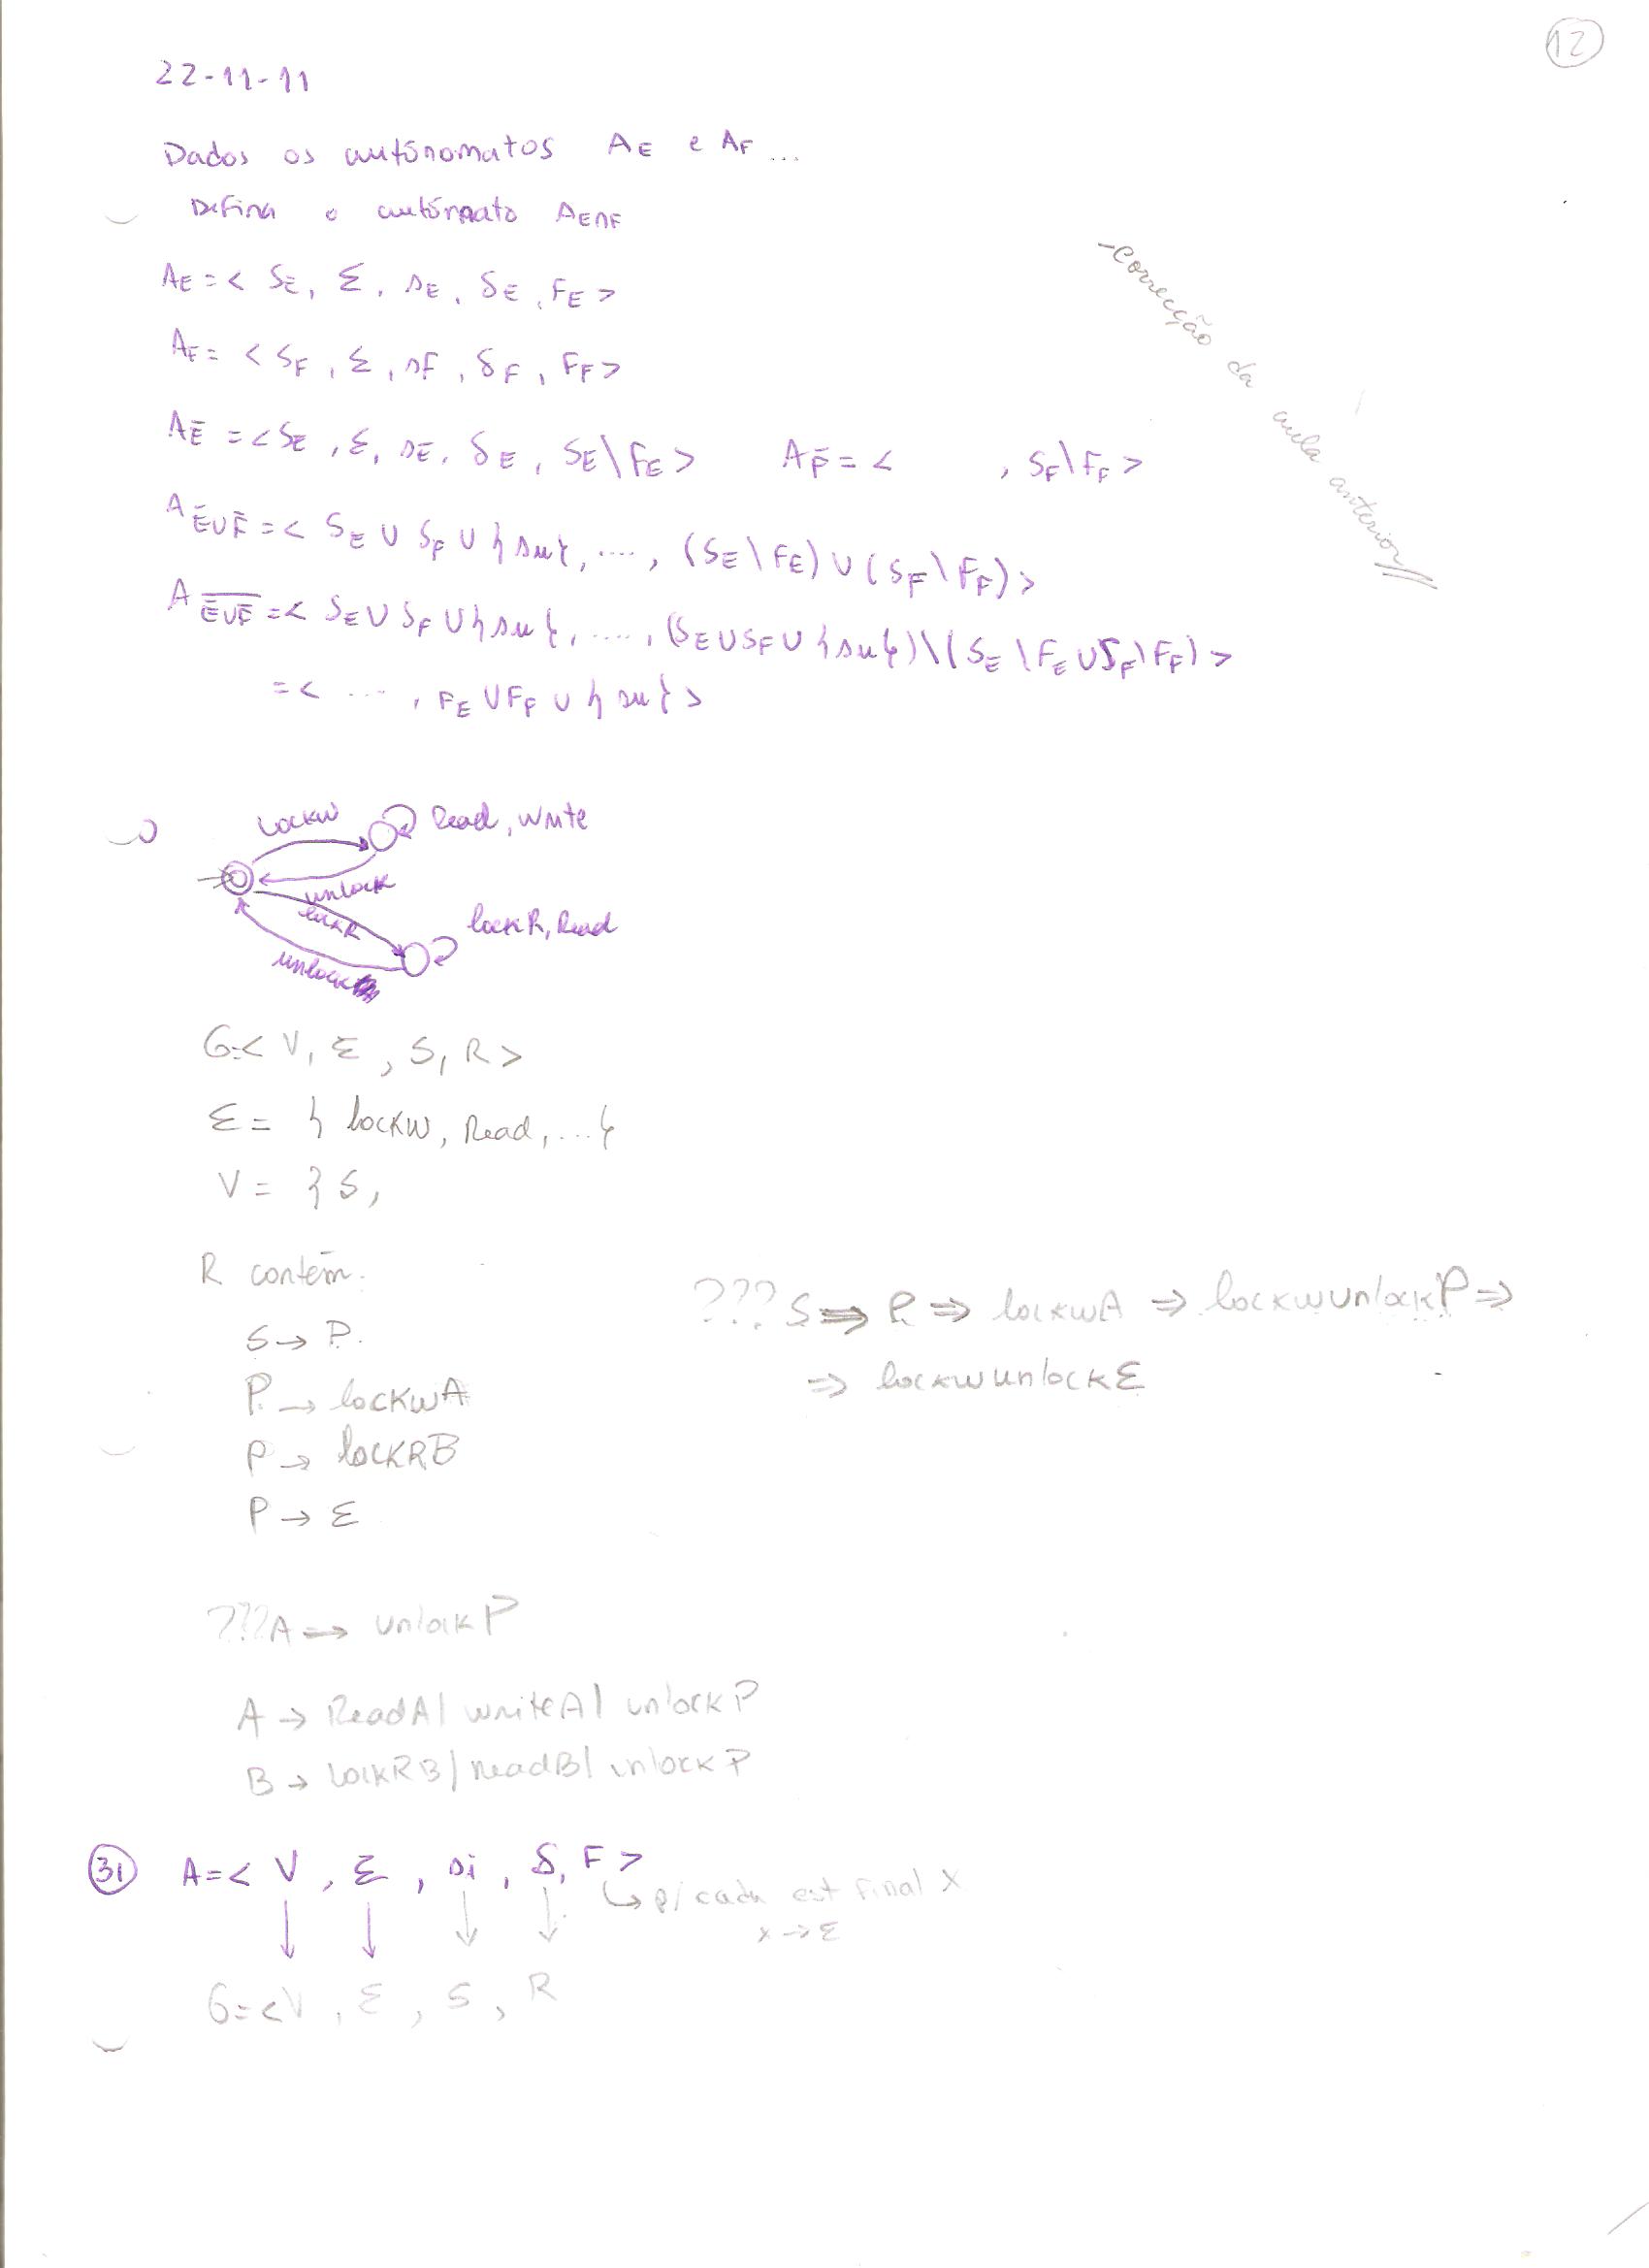 12
22-11-11
Dados os autónomatos AE e AF ...
Defina o autómato AE∩F
- Correcção da aula anterior
AE = < SE, Σ, sE, δE, FE >
AF = < SF, Σ, sF, δF, FF >
AĒ = < SE, Σ, sE, δE, SE\FE > AF̄ = < , SF\FF >
AĒ∪F̄ = < SE ∪ SF ∪ {su}, ...., (SE\FE) ∪ (SF\FF) >
A\overline{Ē∪F̄} = < SE ∪ SF ∪ {su}, ...., (SE ∪ SF ∪ {su})\(SE\FE ∪ SF\FF) >
= < ..., FE ∪ FF ∪ {su} >
lockW
Read, write
unlock
lockR
lockR, Read
unlock
G=< V, Σ, S, R >
Σ = { lockW, Read, ...}
V = { S,
R contém:
S → P
P → lockwA
P → lockRB
P → ε
??? S ⇒ P ⇒ lockwA ⇒ lockwunlockP ⇒
⇒ lockwunlockε
??? A ⇒ unlockP
A → ReadA | writeA | unlockP
B → lockRB | readB | unlockP
31 A = < V, Σ, si, δ, F >
↳ p/ cada est final X
x → ε
G = < V, Σ, S, R